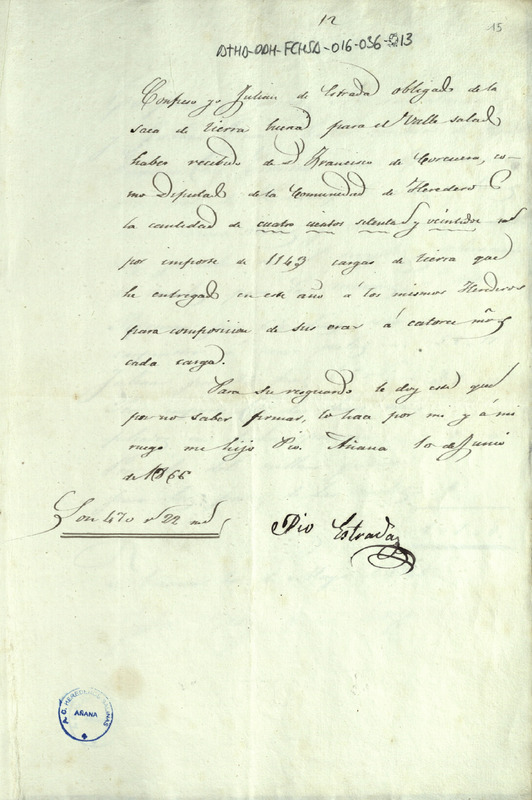 12
15
ATHA-DAH-FCHSA-016-036-013
Confieso yo Julian de Estrada obligado de la
saca de tierra buena para el Valle salado
haber recibido de Dn Francisco de Corcuera, co-
mo Diputado de la Comunidad de Herederos
la cantidad de cuatro cientos setenta rs y veintidos ms
por importe de 1143 cargas de tierra que
he entregado en este año á los mismos Herederos
para composicion de sus eras á catorce mrs
cada carga.
Para su resguardo le doy este que
por no saber firmar, lo hace por mi y á mi
ruego mi hijo Pio. Añana 10 de Junio
de 1866
Son 470 rs 22 ms
Pio Estrada
AÑANA